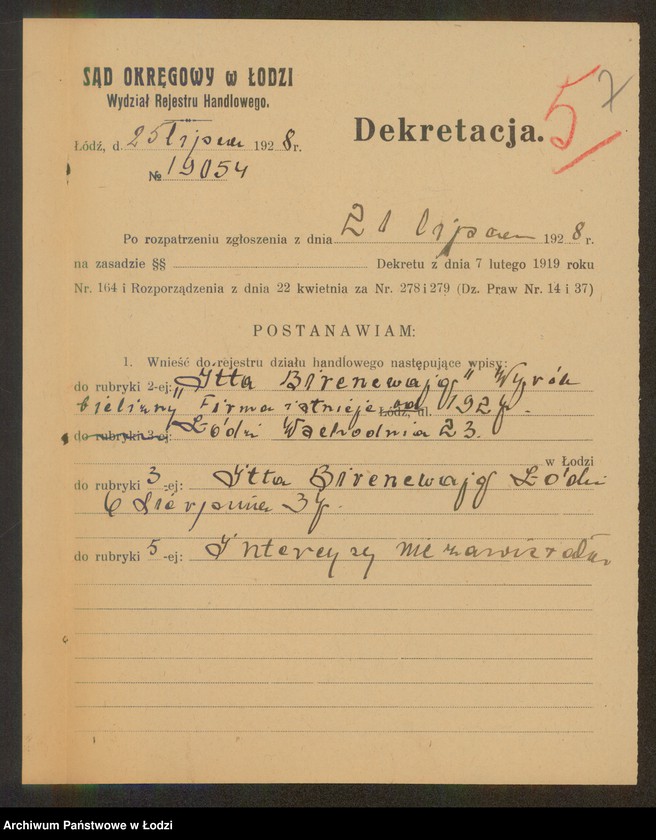 SĄD OKRĘGOWY w ŁODZI
Wydział Rejestru Handlowego.
5 7
Dekretacja.
Łódź, d. 25 lipca 1928 r.
№ 19054
Po rozpatrzeniu zgłoszenia z dnia 21 lipca 1928 r.
na zasadzie §§ Dekretu z dnia 7 lutego 1919 roku
Nr. 164 i Rozporządzenia z dnia 22 kwietnia za Nr. 278 i 279 (Dz. Praw Nr. 14 i 37)
POSTANAWIAM:
1. Wnieść do rejestru działu handlowego następujące wpisy:
do rubryki 2-ej: „Itta Birencwajg" Wyrób
bielizny" Firma istnieje od Łódź, ul. 1927 r.
do rubryki 3-ej: Łódź Wschodnia 23.
w Łodzi
do rubryki 3-ej: Itta Birencwajg Łódź
6 Sierpnia 37.
do rubryki 5-ej: Intercyzy nie zawierała
Archiwum Państwowe w Łodzi